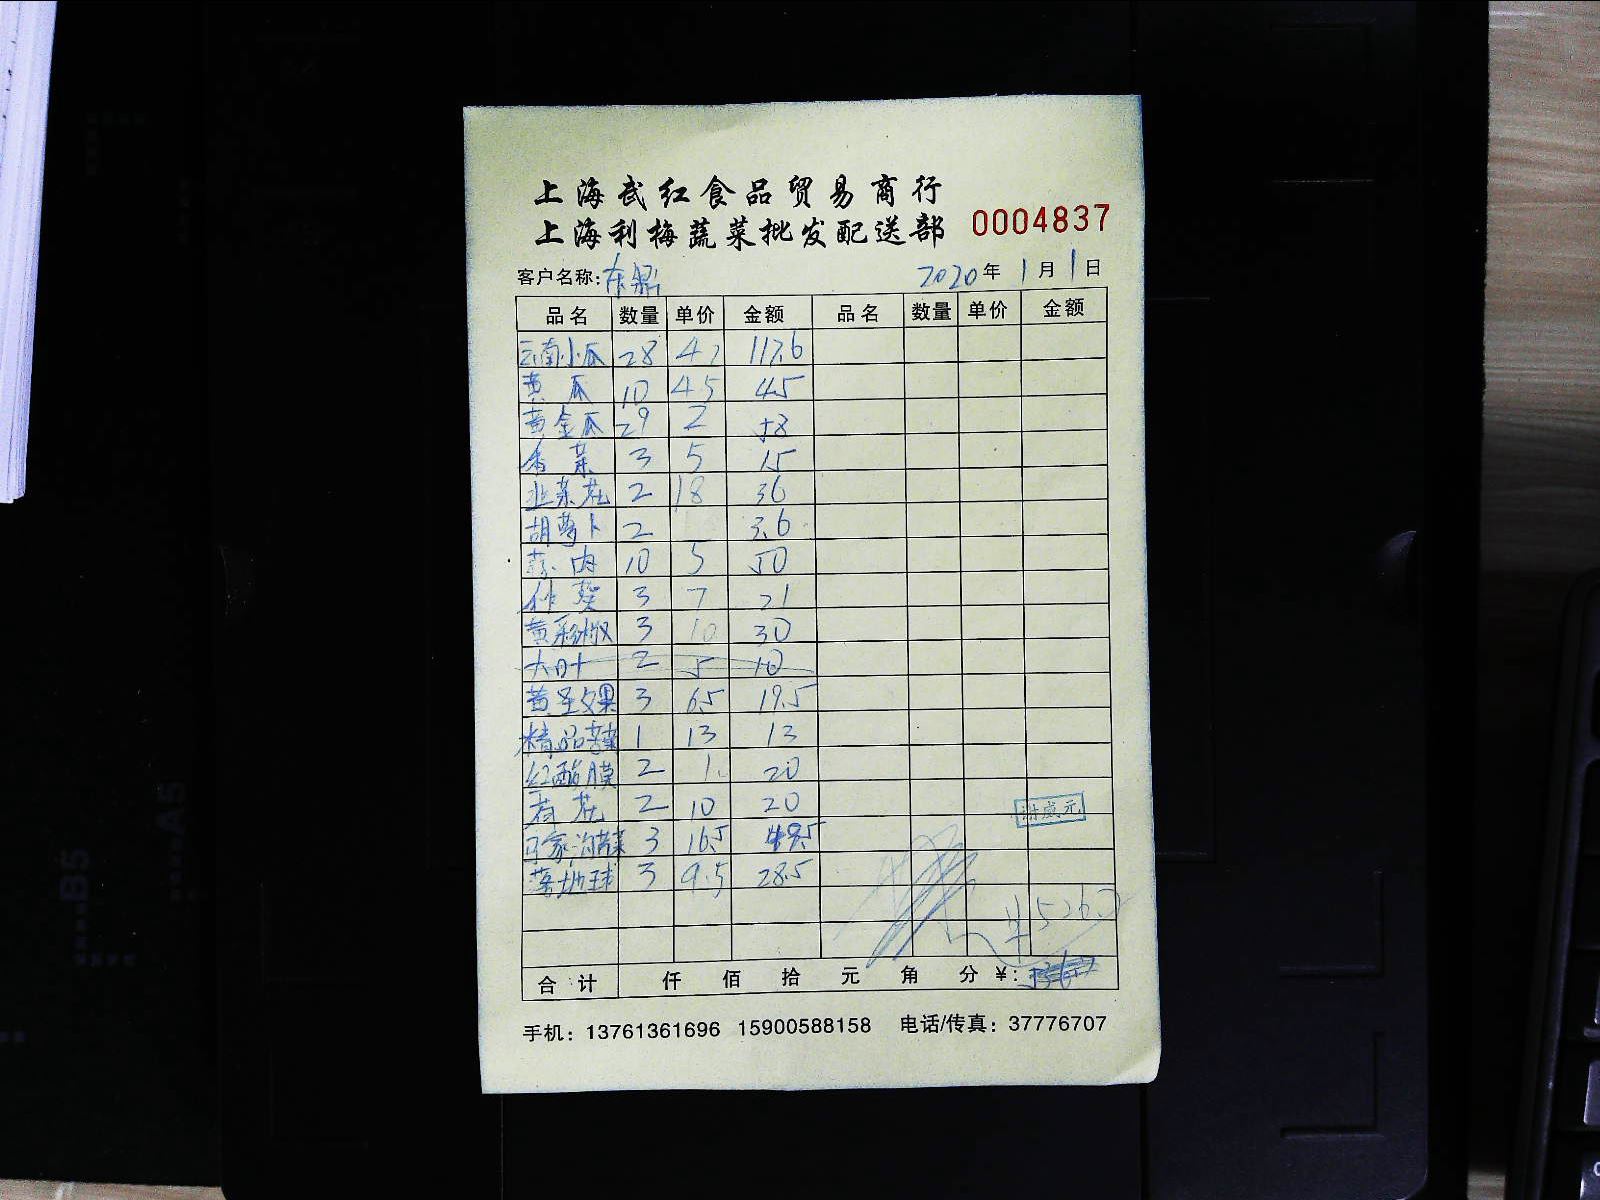 上海武红食品贸易商行
上海利梅蔬菜批发配送部 0004837
客户名称: 东鼎 2020年1月1日
品名 数量 单价 金额 品名 数量 单价 金额
云南小瓜 28 4.2 117.6
黄瓜 10 4.5 45
黄金瓜 29 2 58
香菜 3 5 15
韭菜花 2 18 36
胡萝卜 2 3.6
10 5 50
3 7 21
黄彩椒 3 10 30
2 5 10
黄圣女果 3 6.5 19.5
精品 1 13 13
2 20
2 10 20
马家沟 3 16.5 49.5
3 9.5 28.5
谢成元
合计 仟 佰 拾 元 角 分 ¥:
手机: 13761361696 15900588158 电话/传真: 37776707